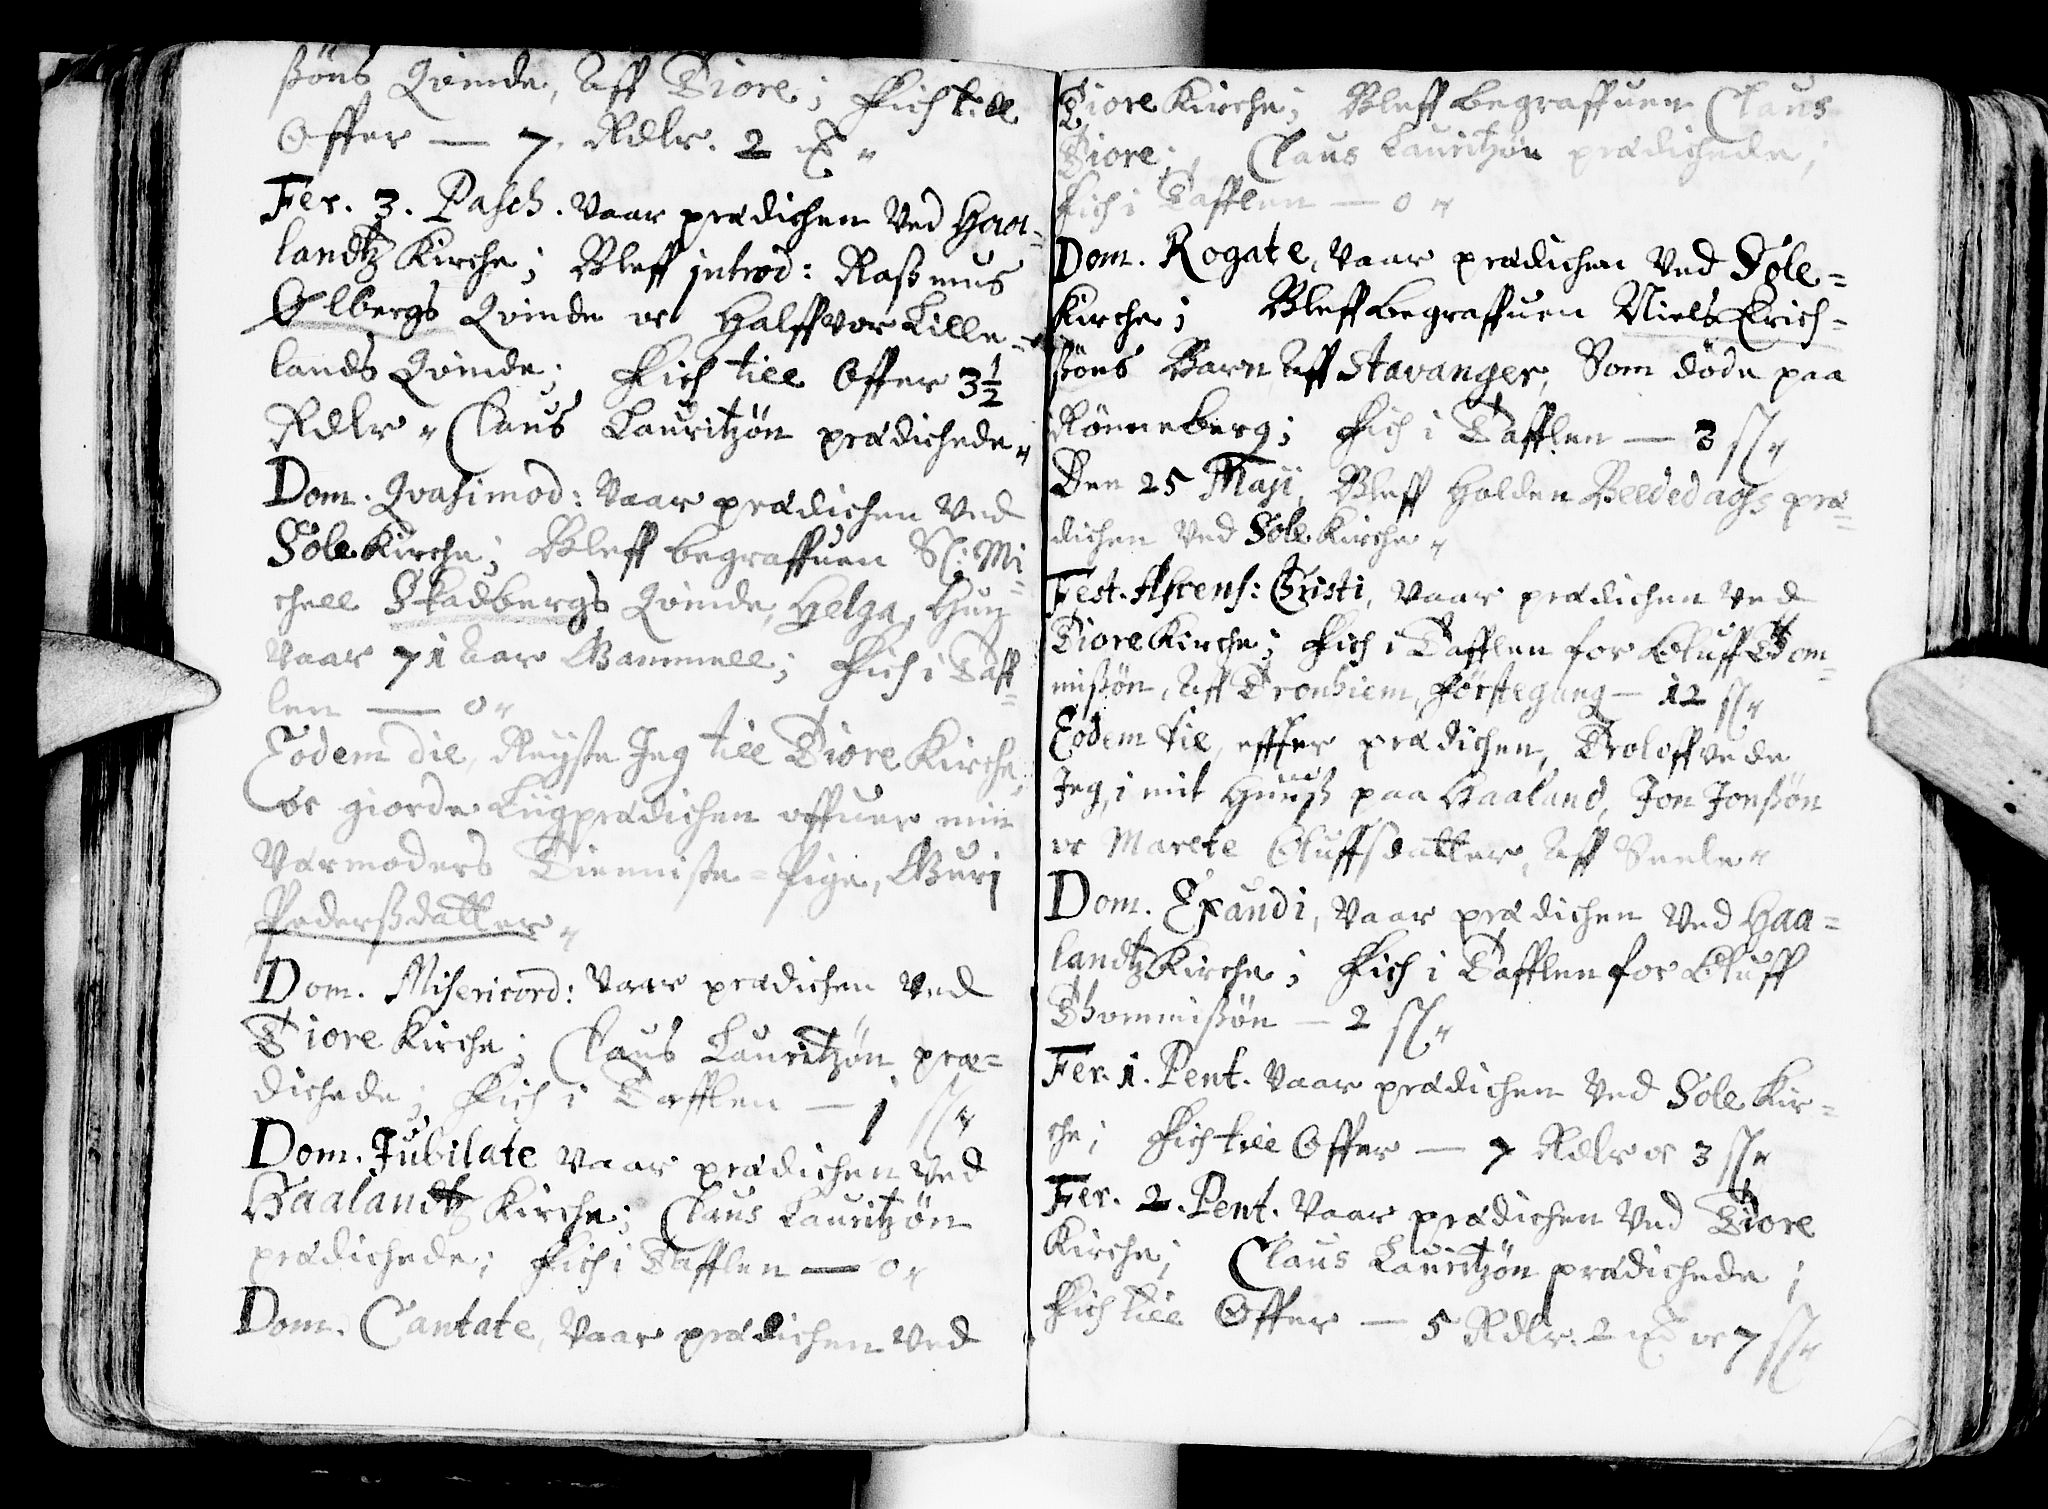 ßöns Qvinde, Aff Tiore; Fich till
Offer — 7. Rdlr. 2
Fer. 3. Pasch. Vaar prædichen Ved Haa-
landtz Kirche; Bleff introd: Raßmus
Ølbergs Qvinde oc Halffvor Lille-
lands Qvinde; Fich till Offer 3 1/2
Rdlr " Claus Lauritzön prædichede "
Dom. Qvasimod: Vaar prædichen Ved
Sole Kirche; Bleff begraffuen Sl: Mi-
chell Skadbergs Qvinde, Helga, Hun
Vaar 71 Aar Gammell; Fich i Taff-
len — 0 "
Eodem die, Reyste Jeg till Tiore Kirche,
oc giorde Liigprædichen offuer min
Værmoders Tienniste-Pige, Guri
Pederßdatter "
Dom. Misericord: Vaar prædichen Ved
Tiore Kirche; Claus Lauritzön præ-
dichede; Fich i Tafflen — 1 sl "
Dom. Jubilate Vaar prædichen Ved
Haalandtz Kirche; Claus Lauritzön
prædichede; Fich i Tafflen — 0 "
Dom. Cantate, Vaar prædichen Ved
Tiore Kirche; Bleff begraffuen Claus
Tiore; Claus Lauritzön prædichede;
Fich i Tafflen — 0 "
Dom. Rogate, Vaar prædichen Ved Sole-
Kirche; Bleff begraffuen Niels Erich-
ßöns Barn Aff Stavanger, Som döde paa
Rönneberg; Fich i Tafflen — 3 sl "
Den 25 Maji, Bleff Holden Beededags præ-
dichen Ved Sole Kirche "
Fest. Ascens: Christi, Vaar prædichen Ved
Tiore Kirche; Fich i Tafflen for Oluff Thom-
mißön, Aff Tronhiem, Förste gang — 12 sl "
Eodem die, effter prædichen, Troloffvede
Jeg, i mit Huuß paa Haaland, Jon Jonßön
oc Marete Oluffsdatter, Aff Seele "
Dom. Exaudi, Vaar prædichen Ved Haa-
landtz Kirche; Fich i Tafflen for Oluff
Thommißön — 2 sl "
Fer. 1. Pent. Vaar prædichen Ved Sole Kir-
che; Fich till Offer — 7 Rdlr oc 3 sl "
Fer. 2. Pent. Vaar prædichen Ved Tiore
Kirche; Claus Lauritzön prædichede;
Fich till Offer — 5 Rdlr. 2 oc 7 sl "